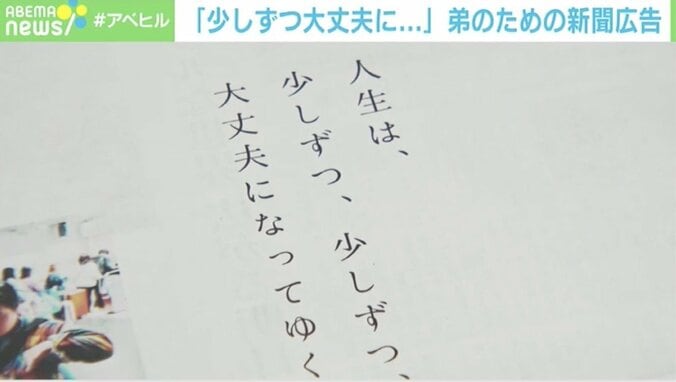 ABEMA
news
#アベヒル
「少しずつ大丈夫に…」弟のための新聞広告
人生は、
少しずつ、少しずつ、
大丈夫になってゆく